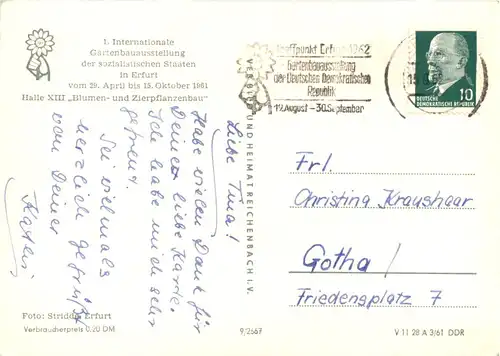 1. Internationale
Gartenbauausstellung
der sozialistischen Staaten
in Erfurt
vom 29. April bis 15. Oktober 1961
Halle XIII „Blumen- und Zierpflanzenbau“
Liebe Tina!
Habe vielen Dank für
Deine liebe Karte.
Ich habe mich sehr
gefreut.
Sei vielmals
herzlich gefrüßt
von Deiner
Foto: Stridde, Erfurt
Verbraucherpreis 0,20 DM
VERLAG UND HEIMAT REICHENBACH I. V.
9/2667
Treffpunkt Erfurt 1962
Gartenbauausstellung
der Deutschen Demokratischen
Republik
12. August - 30. September
DEUTSCHE
DEMOKRATISCHE REPUBLIK
10
Frl.
Christina Kraushaar
Gotha/
Friedensplatz 7
V 11 28 A 3/61 DDR